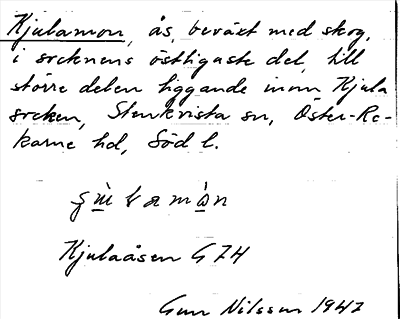 Kjulamon, ås, beväxt med skog,
i socknens östligaste del, till
större delen liggande inom Kjula
socken, Stenkvista sn, Öster-Re-
karne hd, Söd l.
Kjulaåsen G74
Gun Nilsson 1947